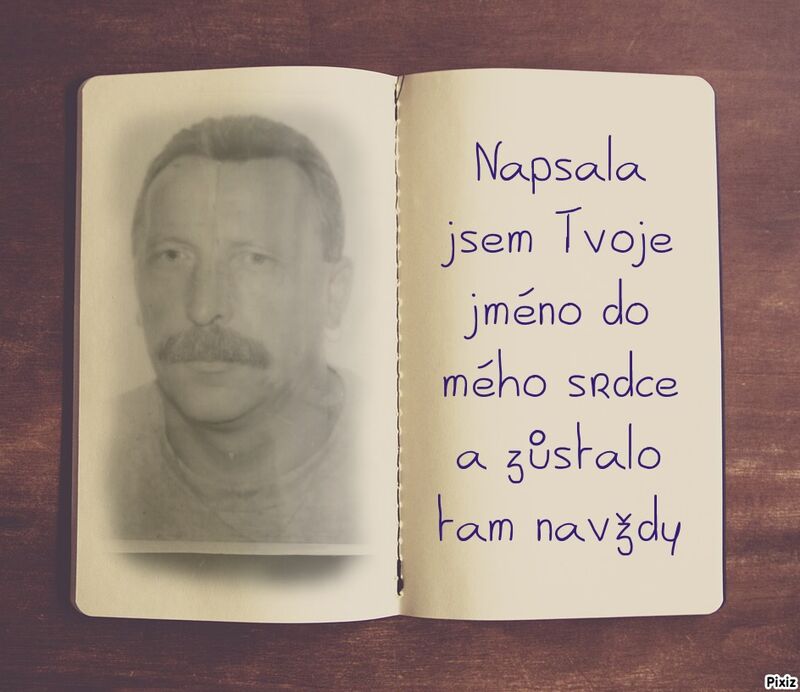 Napsala
jsem Tvoje
jméno do
mého srdce
a zůstalo
tam navždy
Pixiz